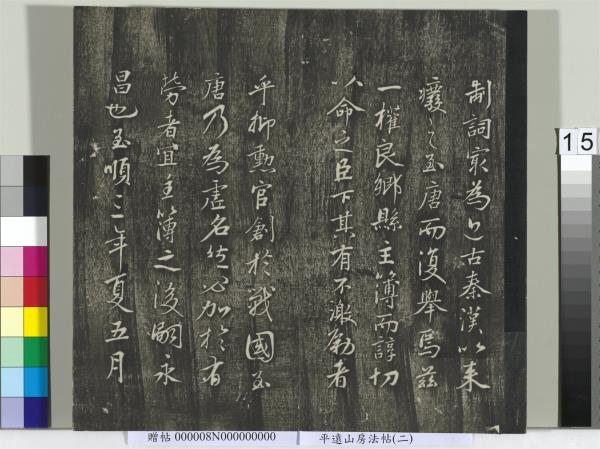 制詞家為之古秦漢以来
癈之至唐而復舉焉茲
一權良鄉縣主簿而諄切
以命之臣下其有不激勵者
乎抑勲官創於戰國至
唐乃為虛名然必加於有
勞者宜主簿之後嗣永
昌也至順二年夏五月
15
贈帖 000008N000000000
平遠山房法帖(二)